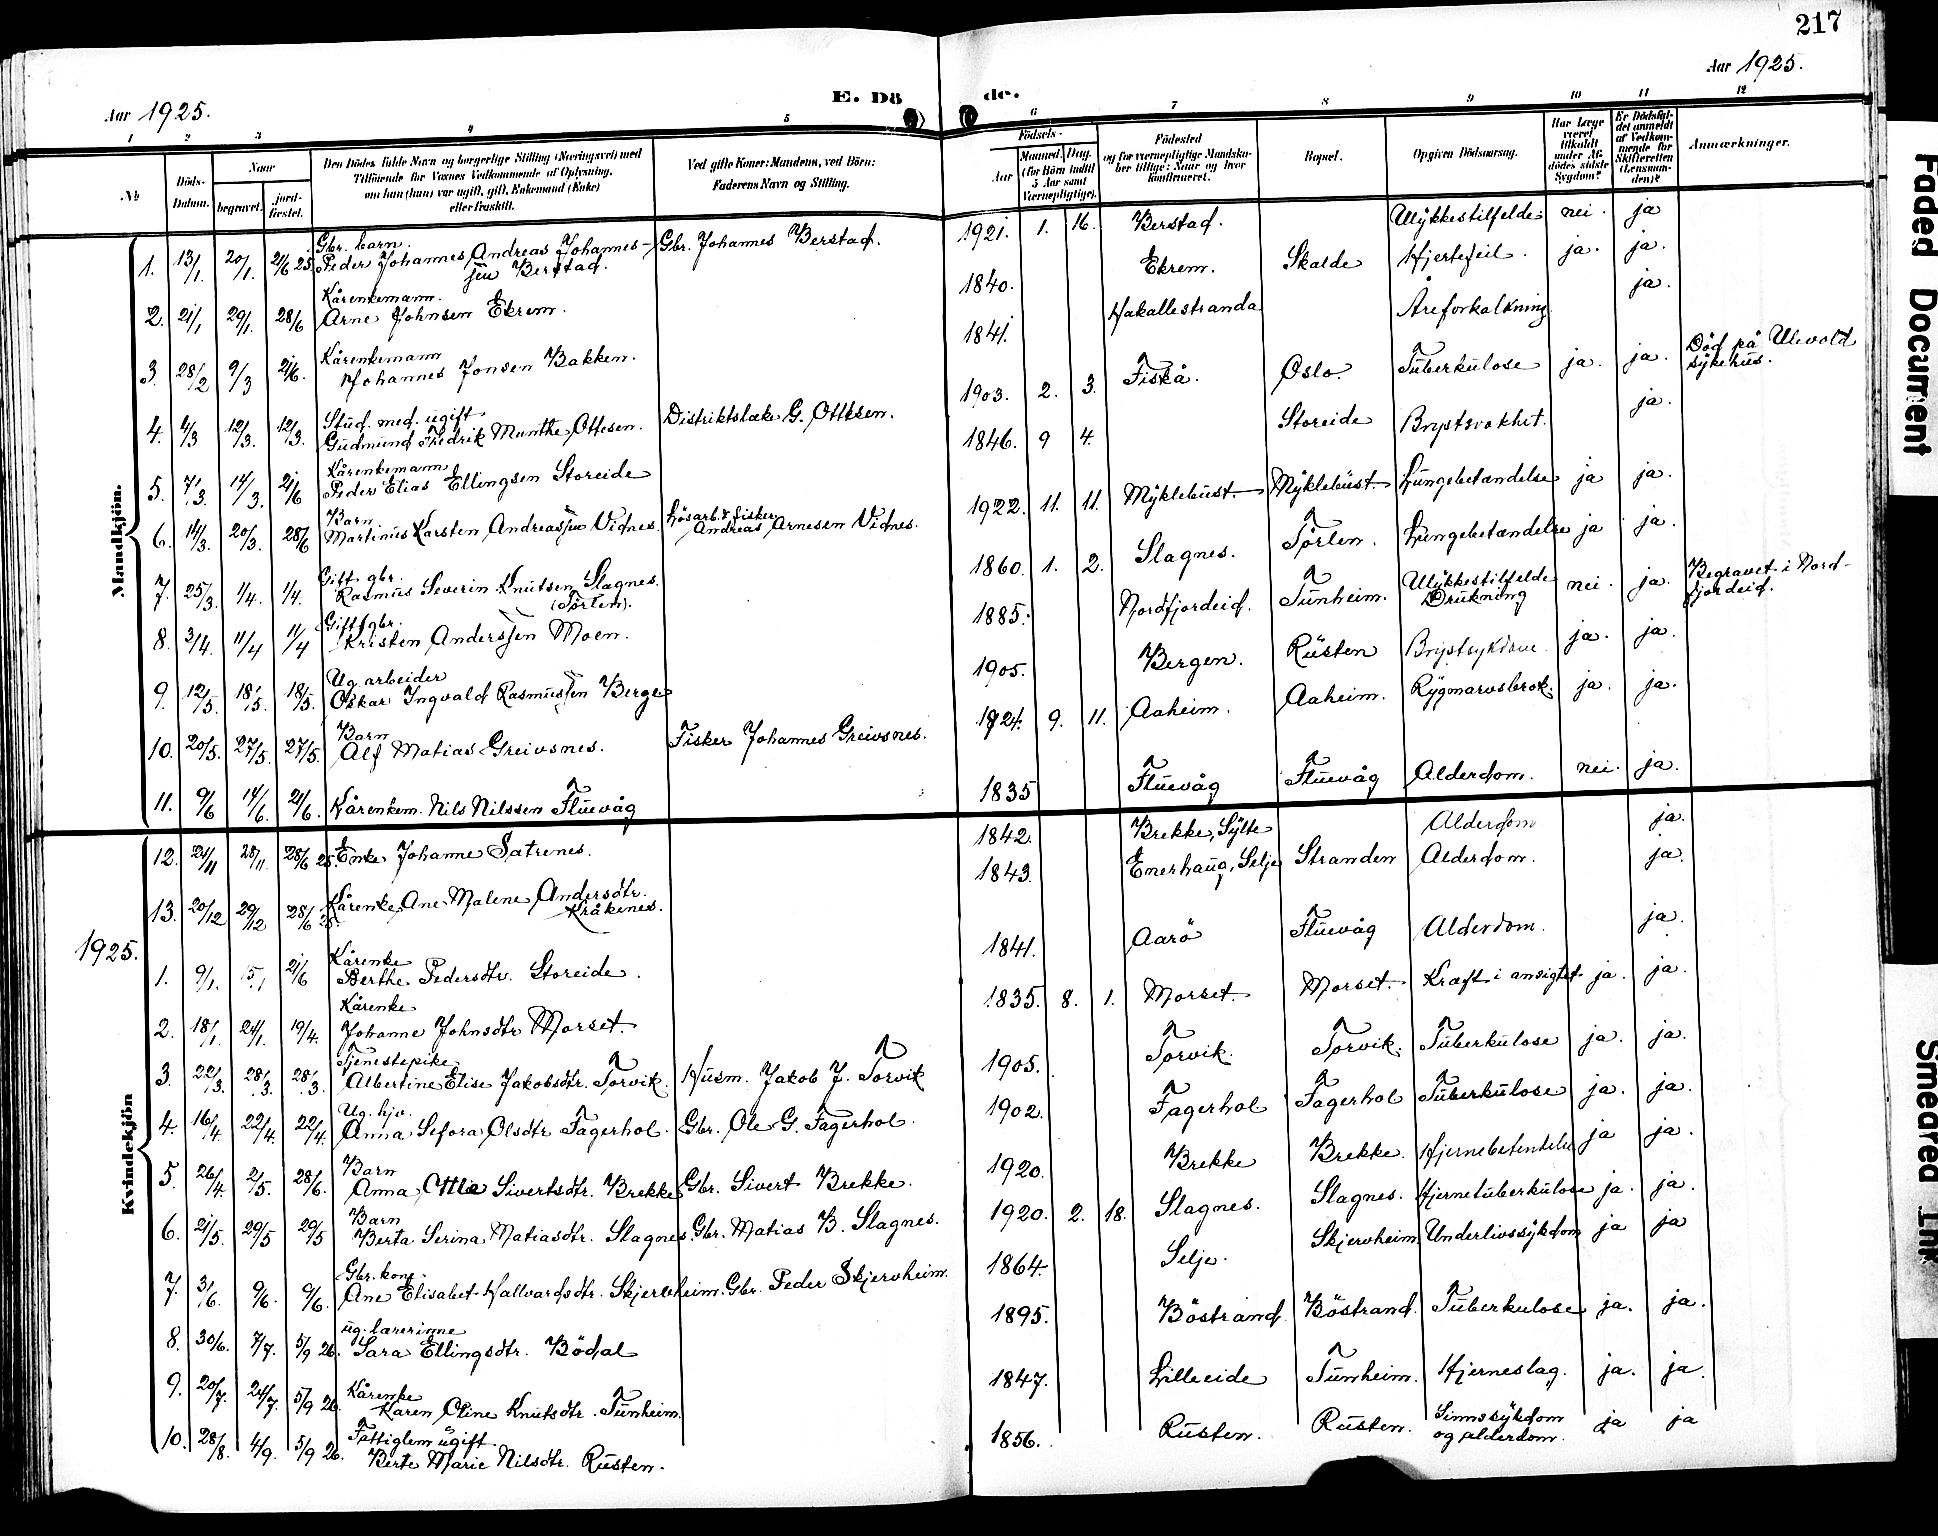 217
Aar 1925.
E. Dö
de.
Aar 1925.
1 2 3 4 5 6 7 8 9 10 11 12
No
Döds-
Datum.
Naar
begravet.
jord-
fæstet.
Den Dödes fulde Navn og borgerlige Stilling (Næringsvei) med
Tilföiende for Voxnes Vedkommende af Oplysning,
om han (hun) var ugift, gift, Enkemand (Enke)
eller fraskilt.
Ved gifte Koner: Mandens, ved Börn:
Faderens Navn og Stilling.
Födsels-
Aar
Maaned. Dag.
(for Börn indtil
5 Aar samt
Værnepligtige).
Födested
og for værnepligtige Mandska-
ber tillige: Naar og hvor
konfirmeret.
Bopæl.
Opgiven Dödsaarsag.
Har Læge
været
tilkaldt
under Af-
dödes sidste
Sygdom?
Er Dödsfal-
det anmeldt
af Vedkom-
mende for
Skifteretten
(Lensman-
den)?
Anmærkninger.
Mandkjön.
Gbr. barn.
1. 13/1. 20/1. 21/6 25. Peder Johannes Andreas Johannes- Gbr. Johannes Berstad. 1921. 1. 16. Berstad. Ulykkestilfelde nei. ja
sen Berstad.
Kårenkemann.
2. 21/1 29/1. 28/6 Arne Johnsen Ekrem. 1840. Ekrem. Skalde Hjertefeil. ja. ja.
Kårenkemann
3. 28/2 9/3 21/6. Johannes Jonsen Bakken. 1841. Hakallestranda Åreforkalkning ja.
Stud. med. ugift
4. 4/3 12/3. 12/3. Gudmund Fredrik Munthe Ottesen. Distriktslæke G. Ottesen. 1903. 2. 3. Fiskå. Oslo. Tuberkulose ja. ja. Död på Ulevold
sykehus.
Kårenkemann
5. 7/3. 14/3. 21/6 Peder Elias Ellingsen Storeide 1846. 9 4. Storeide Brystsvakhet. ja.
Barn
6. 14/3. 20/3. 28/6 Martinus Karsten Andreassen Vidnes. Lösarb. & fisker
Andreas Arnesen Vidnes. 1922. 11. 11. Myklebust. Myklebust. Lungebetændelse ja ja.
Gift gbr.
7. 25/3. 1/4. 1/4. Rasmus Severin Knutsen Slagnes. 1860. 1. 2. Slagnes. Törlen. Lungebetændelse ja ja.
(Törlen).
Gift gbr.
8. 3/4. 11/4 11/4 Kristen Anderssen Moen. 1885. Nordfjordeid. Tunheim. Ulykkestilfelde
Drukning nei. ja. Begravet i Nord-
fjordeid.
Ug. arbeider
9. 12/5. 18/5. 18/5. Oskar Ingvald Rasmussen Berge 1905. Bergen. Rusten Brystsykdom. ja. ja.
Barn
10. 20/5. 27/5. 27/5. Alf Matias Greivsnes. Fisker Johannes Greivsnes. 1924. 9. 11. Aaheim. Aaheim. Rygmarvsbrok. ja. ja.
11. 9/6 14/6. 21/6. Kårenkem. Nils Nilssen Fluevåg 1835 Fluevåg Fluevåg Alderdom. nei. ja.
Kvindekjön
12. 24/11 28/11. 28/6 25. Enke Johanne Satrenes. 1842. Brekke, Sylte Alderdom ja.
13. 20/12 29/12 28/6 25. Kårenke, Ane Malene Andersdtr. 1843. Enerhaug, Selje Stranden Alderdom. ja.
Kråkenes.
1925.
Kårenke
1. 9/1. 15/1 21/6 Berthe Pedersdtr. Storeide. 1841. Aarö Fluevåg Alderdom. ja.
Kårenke
2. 18/1. 24/1. 19/4. Johanne Johnsdtr Morset. 1835. 8. 1. Morset. Morset. Kræft i ansigtet. ja. ja.
Tjenestepike
3. 22/3. 28/3. 28/3. Albertine Elise Jakobsdtr. Torvik. Husm. Jakob J. Torvik 1905. Torvik. Torvik. Tuberkulose ja. ja.
Ug. hjv.
4. 16/4. 22/4. 22/4. Anna Sefora Olsdtr Fagerhol. Gbr. Ole G. Fagerhol. 1902. Fagerhol Fagerhol Tuberkulose ja. ja.
Barn
5. 26/4. 2/5. 28/6. Anna Otilie Sivertsdtr. Brekke Gbr. Sivert Brekke. 1920. Brekke Brekke. Hjernebetendelse ja ja.
Barn
6. 21/5. 29/5 29/5 Berta Serina Matiasdtr. Slagnes. Gbr. Matias B. Slagnes. 1920. 2. 18. Slagnes. Slagnes. Hjernetuberkulose ja. ja.
Gbr. kone.
7. 3/6. 9/6. 9/6. Ane Elisabet Hallvardsdtr. Skjervheim. Gbr. Peder Skjervheim. 1864. Selje. Skjervheim. Underlivssykdom ja ja
ug. lærerinne
8. 30/6. 7/7. 5/9 26. Sara Ellingsdtr. Bödal 1895. Böstrand Böstrand. Tuberkulose ja. ja.
Kårenke
9. 20/7. 24/7. 5/9 26. Karen Oline Knutsdtr. Tunheim. 1847. Lilleeide Tunheim. Hjerneslag. ja. ja
Fattiglem ugift.
10. 28/8. 4/9. 5/9 26. Berte Marie Nilsdtr. Rusten. 1856. Rusten. Rusten. Sinnssykdom
og alderdom. ja ja
Faded Document
Smeared Ink